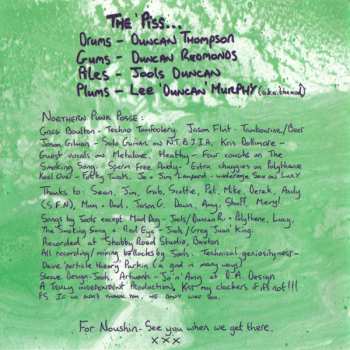 The Piss...
Drums - Duncan Thompson
Gums - Duncan Redmonds
Piles - Jools Duncan
Plums - Lee 'Duncan' Murphy (a.k.a.
Northern Punk Posse:
Greg Boulton - Techno Tomfoolery. Jason Flint - Tambourine/Beer
Jason Gilvan - Solo Guitar on N.T.B.J.I.A, Kris Dollimore -
Guest vocals on Methilone, Heathy - Four sounds on The
Smoking Song - Sperm Free Andy - Extra changies on Polythene
Keel Over - Folky Twats. Joe + Jim Lampard - wobblage Saw on Lucy
Thanks to: Sean, Jim, Gab, Scottie, Pat, Mike, Derek, Andy
(S.F.N), Mum + Dad, Jason G. Dawn, Amy, Staff, Meryl
Songs by Jools except Mad Dog - Jools/Duncan R. + Polythene, Lucy,
The Smoking Song + Red Eye - Jools/Greg Juan King.
Recorded at Shabby Road Studio,
All recording/mixing bollocks by Jools. Technical geniosityness -
Dave 'particle theory' Parkin (a god in many ways)
Sleeve Design - Jools. Artwork - 'Jo' 'n' Amy at R.A. Design
A Truly independent Production, Kiss my clackers if if not!!!
PS If we didn't thank you, we don't like you.
For Noushin - See you when we get there.
x x x